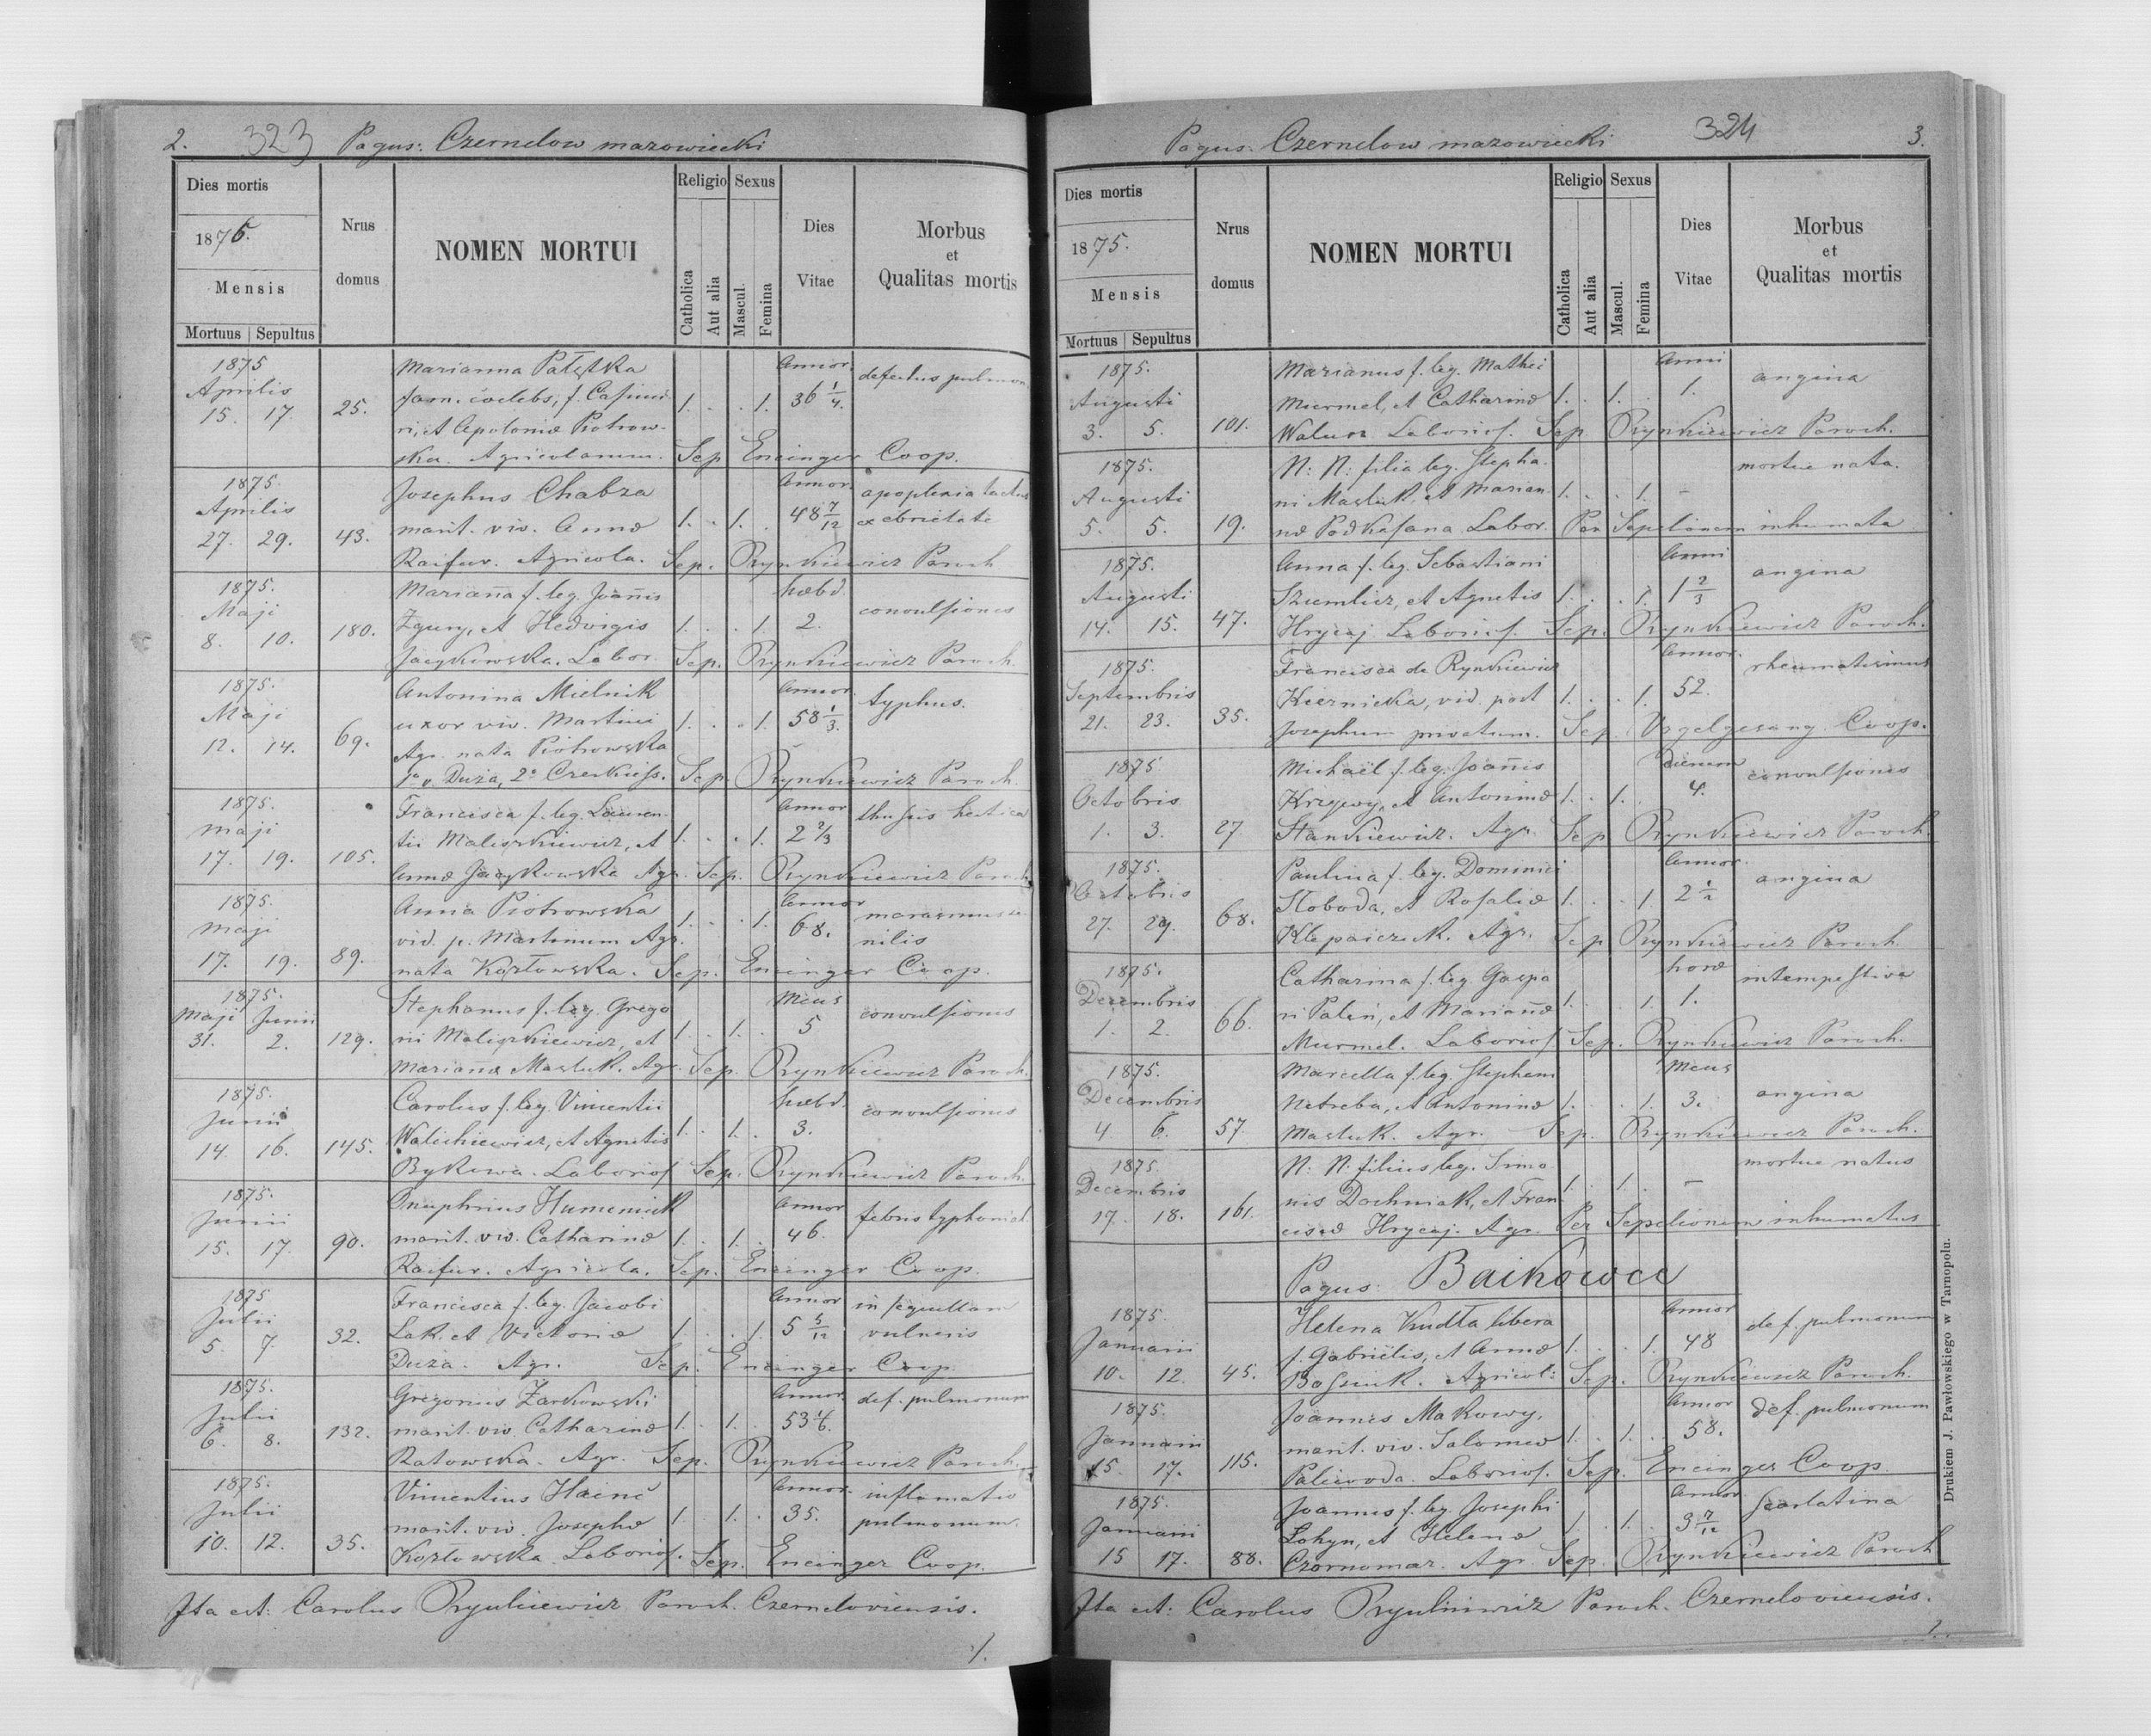 2. 323 Pagus: Czernelow mazowiecki
Dies mortis
1875.
Mensis
Mortuus Sepultus
Nrus domus
NOMEN MORTUI
Religio Sexus
Catholica
Aut alia
Mascul.
Femina
Dies Vitae
Morbus et Qualitas mortis
1875 Marianna Annor. defectus
Aprilis fam. coelebs, f. Casimi 1. . . 1. 36 1/4.
15. 17. 25. ri, et Apoloniæ Piotrow-
ska. Agricolarum. Sep Encinger Coop.
1875. Josephus Chabza Annor. apoplexia
Aprilis marit. viv. Annæ 1. . 1. . 48 7/12 ex ebrietate
27. 29. 43. Raifur. Agricola. Sep. Rynkiewicz Paroch
1875. Mariana f. leg. Joanis hebd. convulsiones
Maji Zgury, et Hedvigis 1. . . 1. 2.
8. 10. 180. Jacykowska. Labor. Sep. Rynkiewicz Paroch.
1875. Antonina Mielnik Annor. typhus.
Maji uxor viv. Martini 1. . . 1. 58 1/3.
12. 14. 69. Agr. nata Piotrowska
1º v. Duża, 2º Sep. Rynkiewicz Paroch.
1875. Francisca f. leg. Lauren- Annor
Maji tii Maliszkiewicz, et 1. . . 1. 2 2/3
17. 19. 105. Annæ Jacykowska Agr. Sep. Rynkiewicz Paroch
1875. Anna Piotrowska Annor marasmus se
Maji vid. p. Martinum Agr. 1. . . 1. 68. nilis
17. 19. 89. nata Kozłowska. Sep. Encinger Coop.
1875. Stephanus f. leg. Grego Mens convulsiones
Maji Junii rii Maliszkiewicz, et 1. . 1. . 5
31. 2. 129. Marianæ Masluk. Agr. Sep. Rynkiewicz Paroch.
1875. Carolus f. leg. Vincentii hebd. convulsiones
Junii Walichiewicz, et Agnetis 1. . 1. . 3.
14. 16. 145. Bykowa. Laborios Sep. Rynkiewicz Paroch.
1875. Onuphrius Humeniuk Annor febris
Junii marit. viv. Catharinæ 1. . 1. . 46.
15. 17. 90. Raifur. Agricola. Sep. Encinger Coop.
1875 Francisca f. leg. Jacobi Annor in sequellam
Julii Lak. et Victoriæ 1. . . 1. 5 5/12 vulneris
5. 7. 32. Duża. Agr. Sep. Encinger Coop
1875. Gregorius Żarkowski Annor. def. pulmonum
Julii marit. viv. Catharinæ 1. . 1. . 53 1/6.
6. 8. 132. Ratowska. Agr. Sep. Rynkiewicz Paroch.
1875. Vincentius Annor. inflamatio
Julii marit. viv. Josephæ 1. . 1. . 35. pulmonum.
10. 12. 35. Kozłowska Laborios. Sep. Encinger Coop.
Ita est: Carolus Rynkiewicz Paroch. Czerneloviensis.
./.
Pagus: Czernelow mazowiecki 324 3.
Dies mortis
1875.
Mensis
Mortuus Sepultus
Nrus domus
NOMEN MORTUI
Religio Sexus
Catholica
Aut alia
Mascul.
Femina
Dies Vitae
Morbus et Qualitas mortis
1875. Marianus f. leg. Mathei Anni angina
Augusti Murmel, et Catharinæ 1. . 1. . 1.
3. 5. 101. Laborios. Sep. Rynkiewicz Paroch.
1875. N: N: filia leg. Stepha- mortue nata.
Augusti ni Masluk. et Marian- 1. . . 1. -
5. 5. 19. næ Labor. Per Sepelionem inhumata
1875. Anna f. leg. Sebastiani Anni angina
Augusti Szumlicz, et Agnetis 1. . . 1. 1 2/3
14. 15. 47. Hrycaj Laborios. Sep. Rynkiewicz Paroch.
1875. Francisca de Rynkiewicz Annor. rheumatismus
Septembris Kiernicka, vid. post 1. . . 1. 52.
21. 23. 35. Josephum privatum. Sep. Vogelgesang Coop.
1875. Michaël f. leg. Joanis Dierum convulsiones
Octobris Krzywy, et Antoninæ 1. . 1. . 4.
1. 3. 27 Stankiewicz. Agr. Sep Rynkiewicz Paroch.
1875. Paulina f. leg. Dominici Annor angina
Octobris Słoboda, et Rosaliæ 1. . . 1. 2 1/2
27. 29. 68. Agr. Sep Rynkiewicz Paroch.
1875. Catharina f. leg. Gaspa horæ intempestiva
Decembris ri Paleń, et Marianæ 1. . . 1. 1.
1. 2. 66. Murmel. Laborios Sep. Rynkiewicz Paroch.
1875. Marcella f. leg. Stephani Mens
Decembris Netreba, et Antoninæ 1. . . 1. 3. angina
4 6. 57. Masluk. Agr. Sep. Rynkiewicz Paroch.
1875. N. N. filius leg. Simo- mortue natus
Decembris nis Dochniak, et Fran- 1. . 1. . -
17. 18. 161. ciscæ Hrycaj. Agr. Per Sepelionem inhumatus
Pagus: Baikowce
1875. Helena Kudła libera Annor def. pulmonum
Januarii f. Gabriëlis, et Annæ 1. . . 1. 48
10. 12. 45. Agricol: Sep. Rynkiewicz Paroch.
1875. Joannes Makowy, Annor def. pulmonum
Januarii marit. viv. Salomeæ 1. . 1. . 58.
15. 17. 115. Paliwoda. Laborios. Sep. Encinger Coop.
1875. Joannes f. leg. Josephi Annor Scarlatina
Januarii Lohyn, et Helenæ 1. . 1. . 3 7/12
15 17. 88. Czornomaz. Agr. Sep. Rynkiewicz Paroch
Ita est: Carolus Rynkiewicz Paroch. Czerneloviensis.
Drukiem J. Pawłowskiego w Tarnopolu.